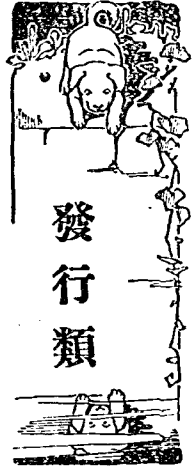 發行類